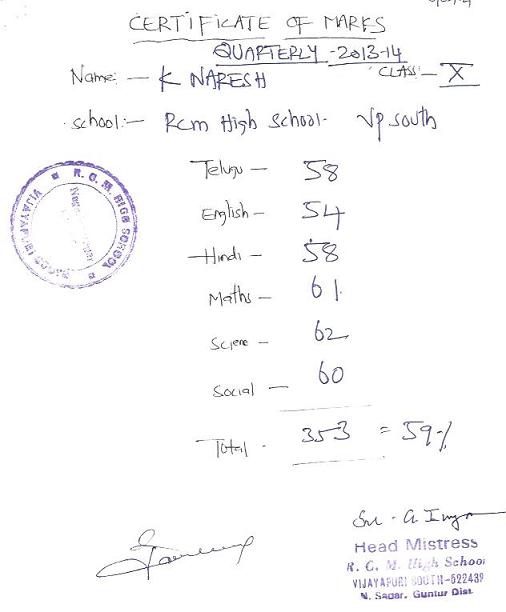 CERTIFICATE OF MARKS
QUARTERLY - 2013-14
Name: - K NARESH CLASS - X
School:- Rcm High School. Vp South
Telugu - 58
English - 54
Hindi - 58
Maths - 61
Sciene - 62
Social - 60
Total - 353 = 59%
R. C. M. HIGH SCHOOL
VIJAYAPURI SOUTH
Head Mistress
R. C. M. High School
VIJAYAPURI SOUTH-522439
N. Sagar, Guntur Dist.